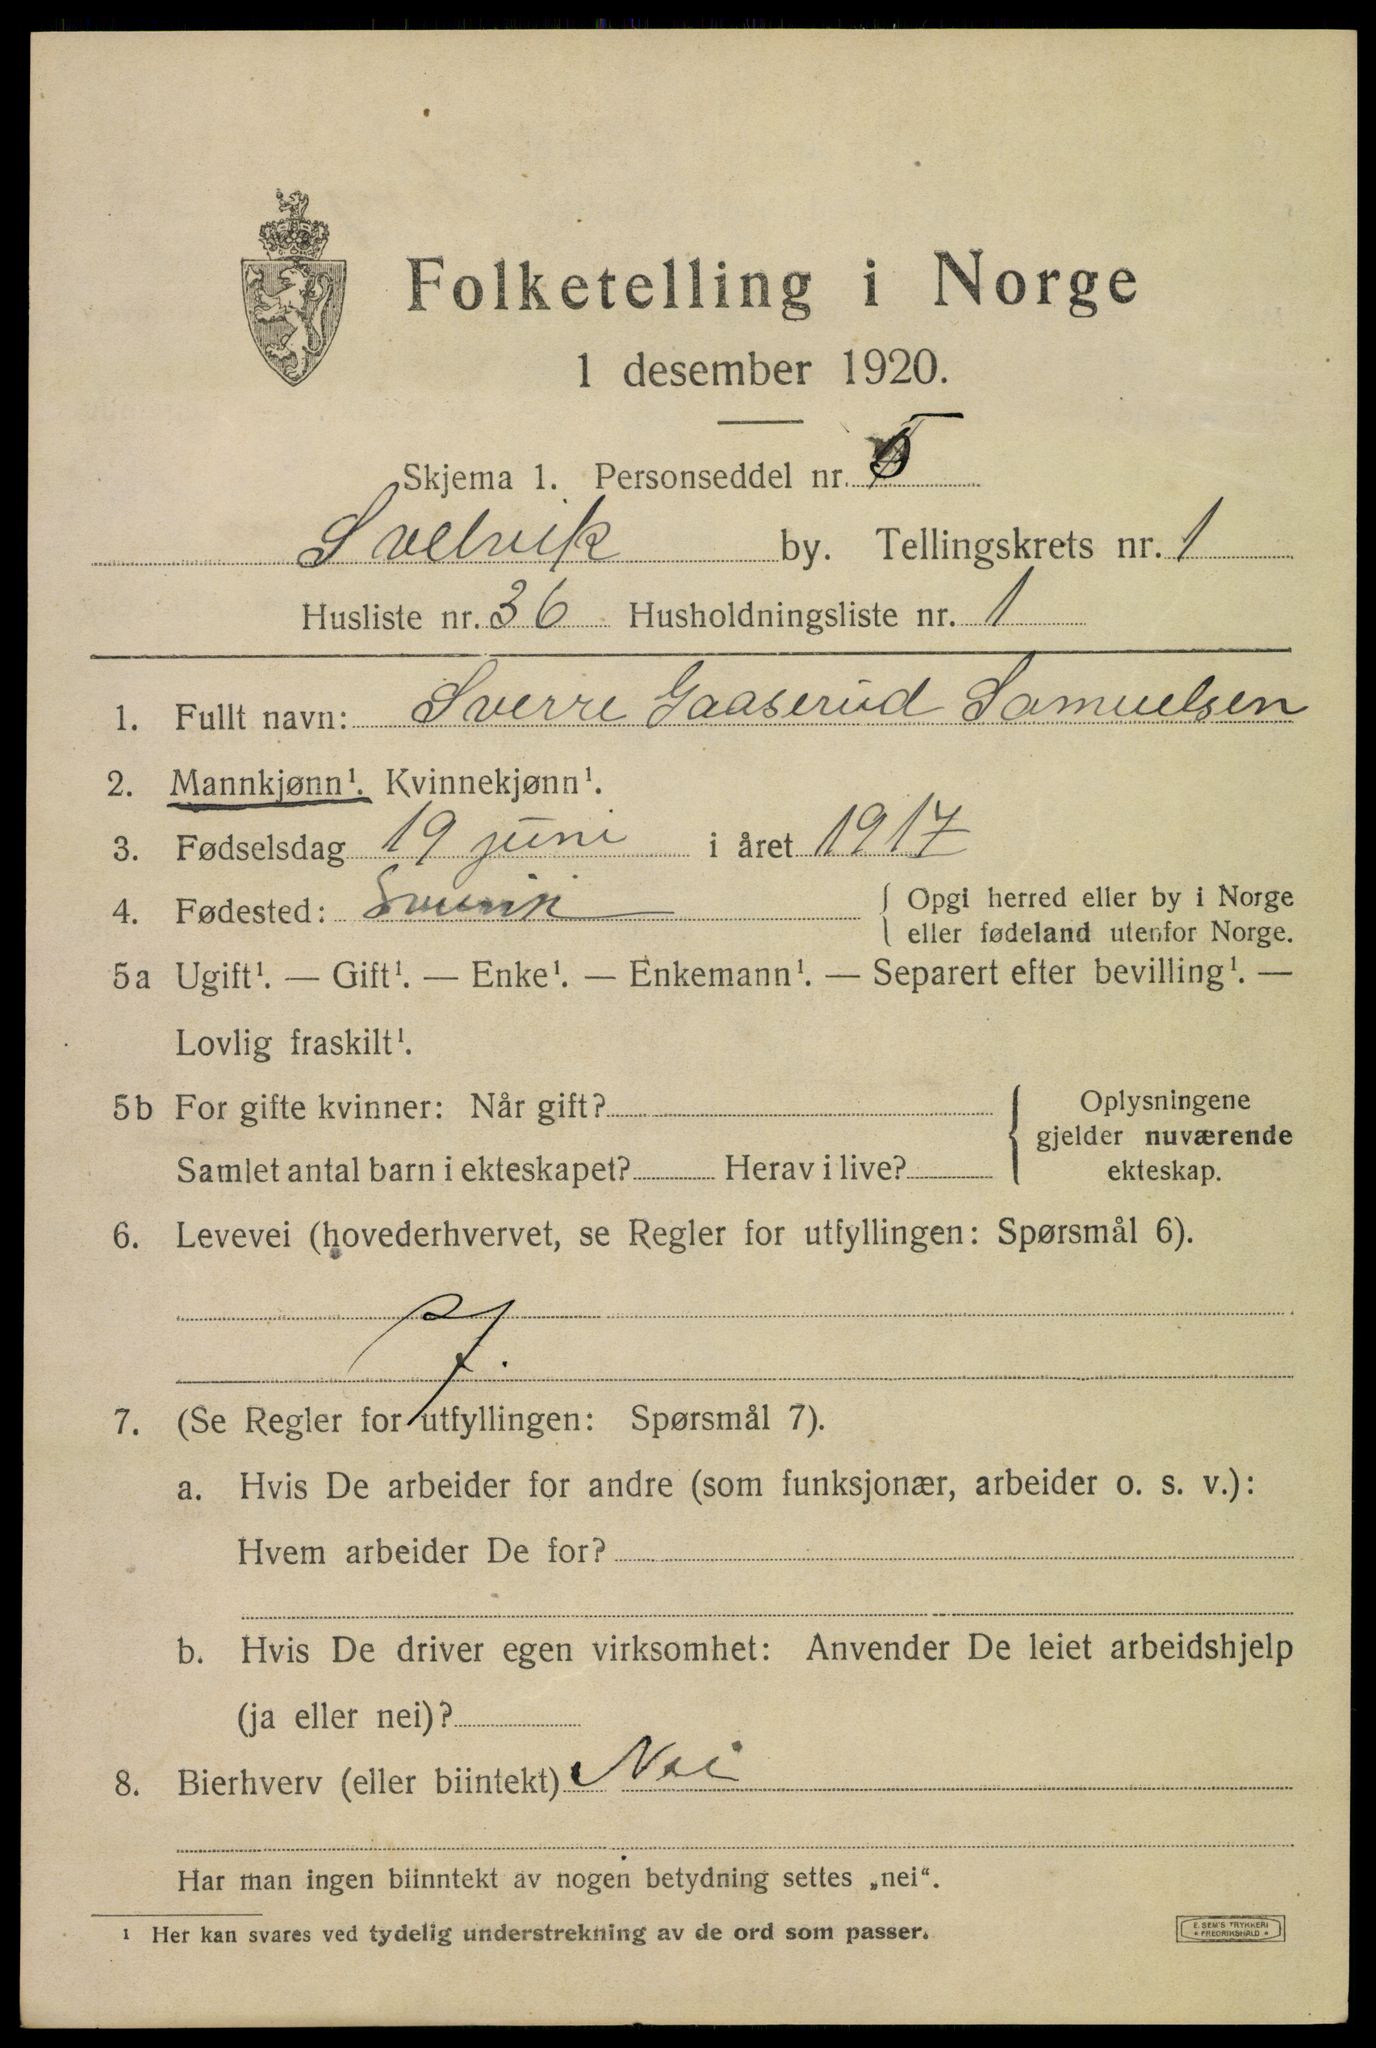 Folketelling i Norge
1 desember 1920.
Skjema 1. Personseddel nr. 5
Svelvik by. Tellingskrets nr. 1
Husliste nr. 36 Husholdningsliste nr. 1
1. Fullt navn: Sverre Gaaserud Samuelsen
2. Mannkjønn¹. Kvinnekjønn¹.
3. Fødselsdag 19 juni i året 1917
4. Fødested: Svelvik { Opgi herred eller by i Norge
eller fødeland utenfor Norge.
5a Ugift¹. — Gift¹. — Enke¹. — Enkemann¹. — Separert efter bevilling¹. —
Lovlig fraskilt¹.
5b For gifte kvinner: Når gift? { Oplysningene
gjelder nuværende
Samlet antal barn i ekteskapet? Herav i live? ekteskap.
6. Levevei (hovederhvervet, se Regler for utfyllingen: Spørsmål 6).
7. (Se Regler for utfyllingen: Spørsmål 7).
a. Hvis De arbeider for andre (som funksjonær, arbeider o. s. v.):
Hvem arbeider De for?
b. Hvis De driver egen virksomhet: Anvender De leiet arbeidshjelp
(ja eller nei)?
8. Bierhverv (eller biintekt) Nei
Har man ingen biinntekt av nogen betydning settes „nei“.
¹ Her kan svares ved tydelig understrekning av de ord som passer.
E. SEM'S TRYKKERI
* FREDRIKSHALD *